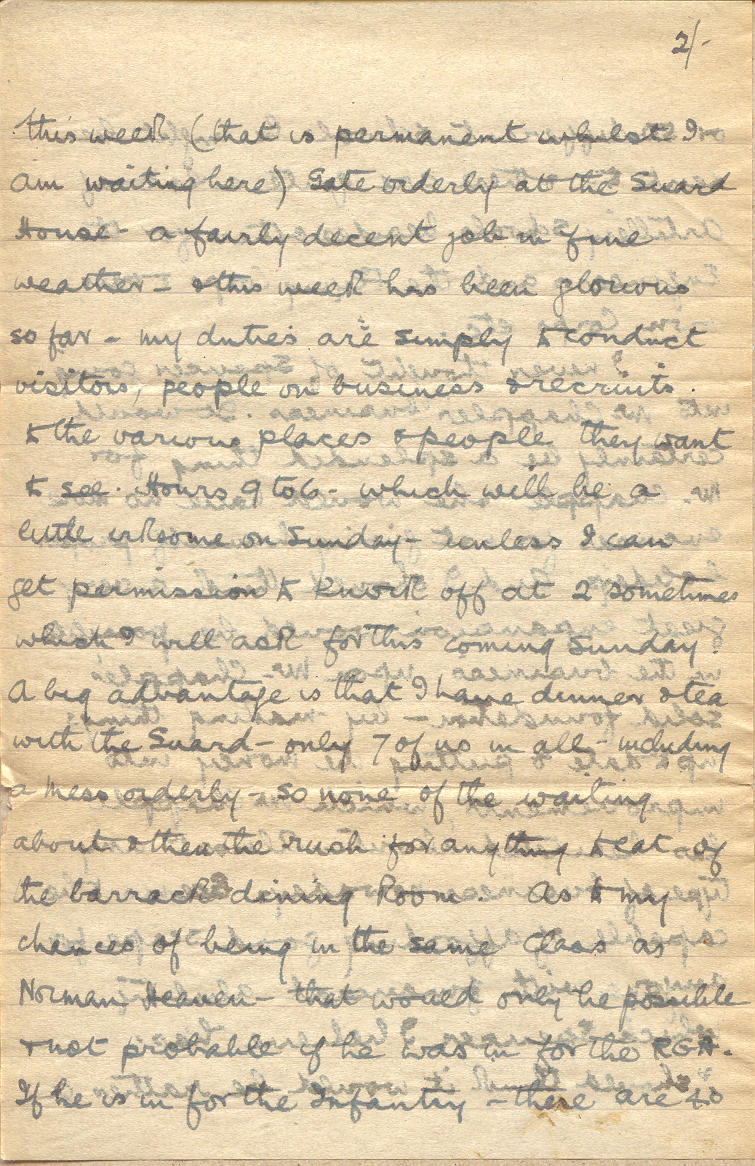 2/-
this week (that is permanent whilst I
am waiting here) Gate orderly at the Guard
House - a fairly decent job in fine
weather - & this week has been glorious
so far - my duties are simply to conduct
visitors, people on business & recruits
to the various places & people they want
to see. Hours 9 to 6 - which will be a
little irksome on Sunday - unless I can
get permission to knock off at 2 sometimes
which I will ask for this coming Sunday.
A big advantage is that I have dinner & tea
with the Guard - only 7 of us in all - including
a mess orderly - so none of the waiting
about & then the rush for anything to eat of
the barrack dining Room. As to my
chances of being in the same Class as
Norman Heaven - that would only be possible
& not probable if he was in for the RGA.
If he is in for the Infantry - there are 40